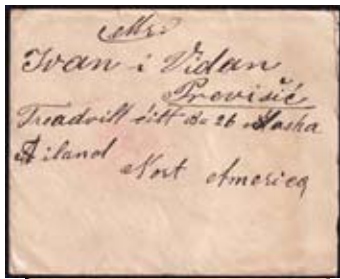 Mr.
Ivan i Vidan
Previšić
Treadvill čitt Bo 26 Alaska
Ailand
Nort America